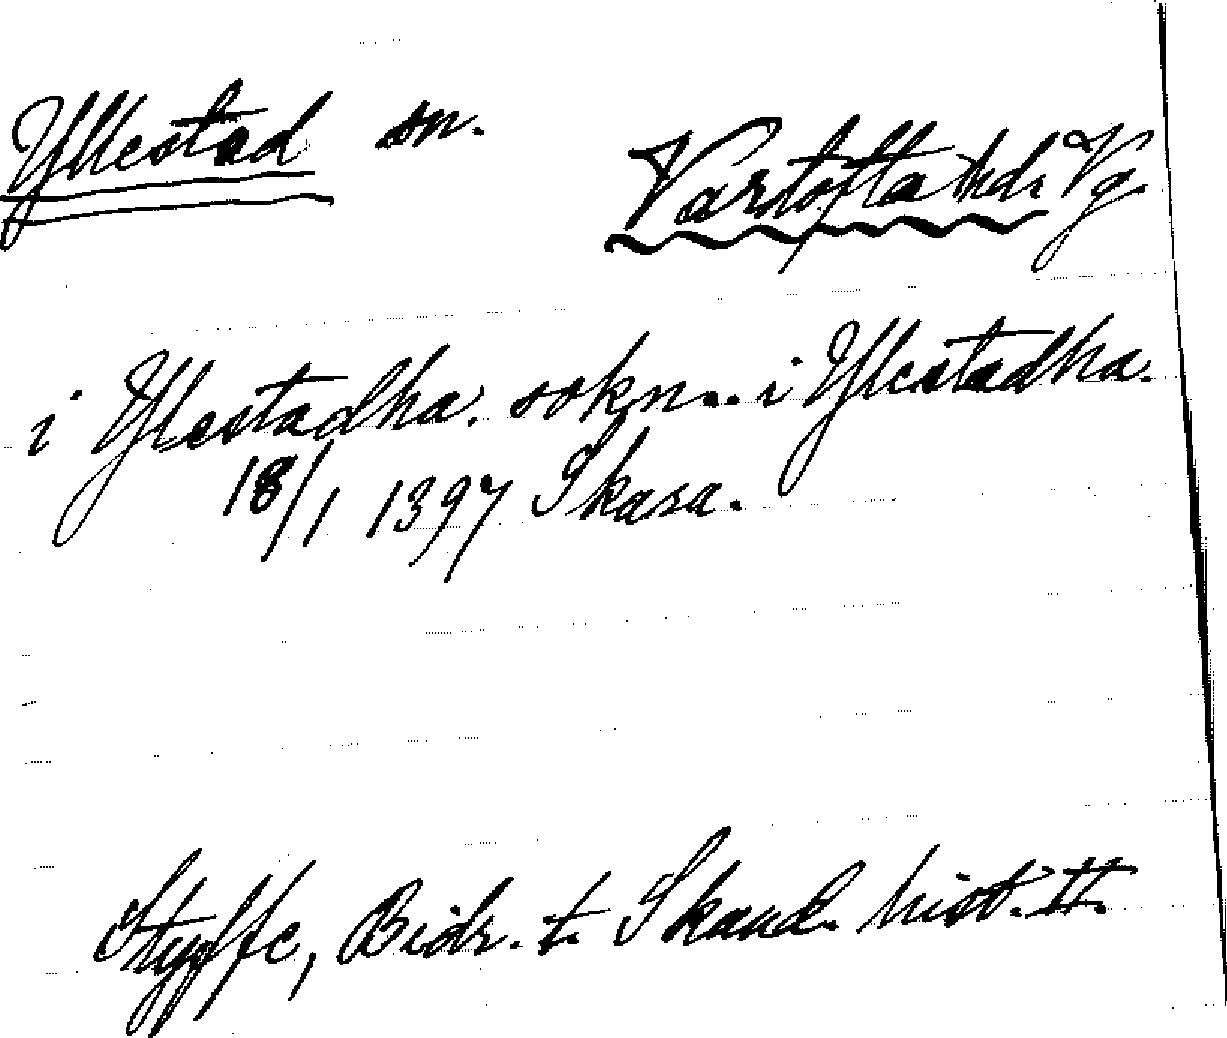 Yllestad sn.
Vartofta hd. Vg.
i Ylestadha. sokn... i Ylestadha.
18/1 1397 Skara.
Styffe, Bidr. t. Skand. hist. II.